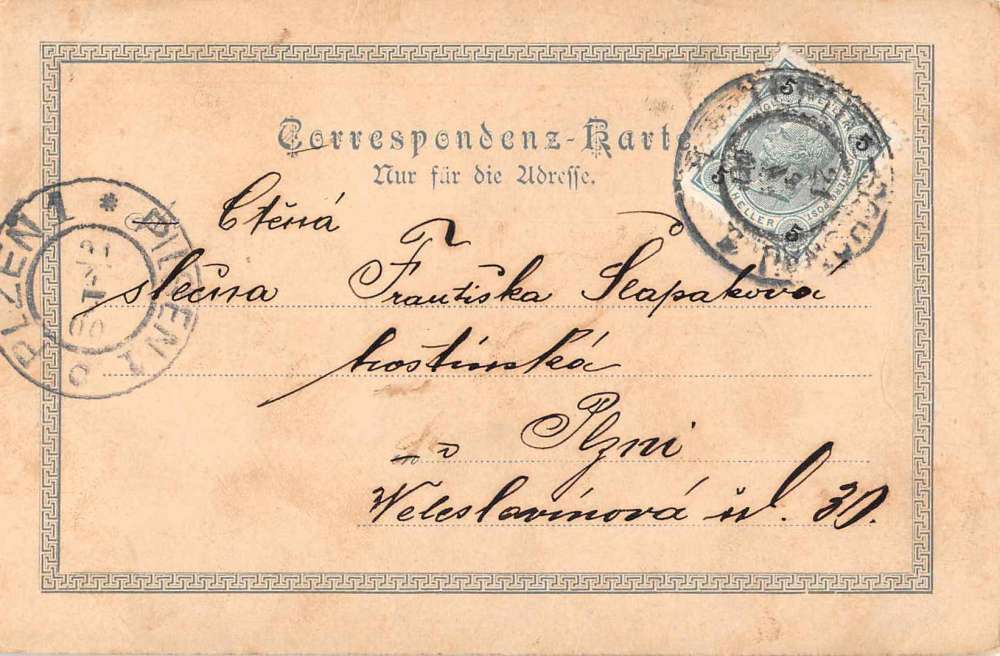 Correspondenz-Karte
Nur für die Adresse.
Ctěná
slečna Františka Slapaková
hostinská
v Plzni
Weleslavínová ul. 30.
PLZEŇ 1 * PILSEN 1
5 5 5 5
HELLER